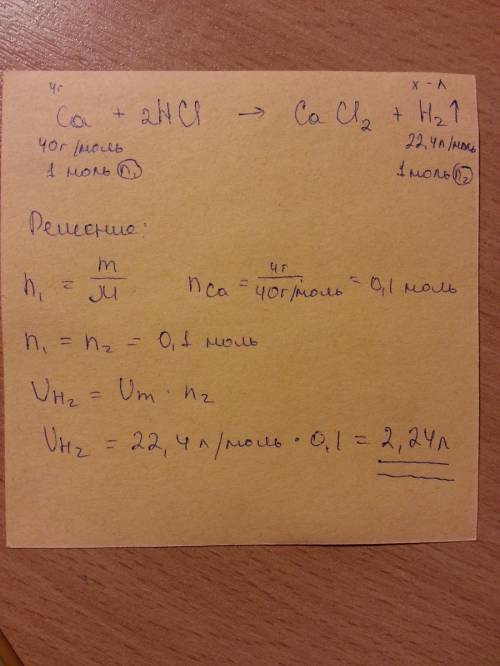 4г x - л
Ca + 2HCl → CaCl₂ + H₂↑
40г/моль 22,4л/моль
1 моль n₁ 1 моль n₂
Решение:
n₁ = m/M nCa = 4г/40г/моль = 0,1 моль
n₁ = n₂ = 0,1 моль
VH₂ = Vm · n₂
VH₂ = 22,4л/моль · 0,1 = 2,24л